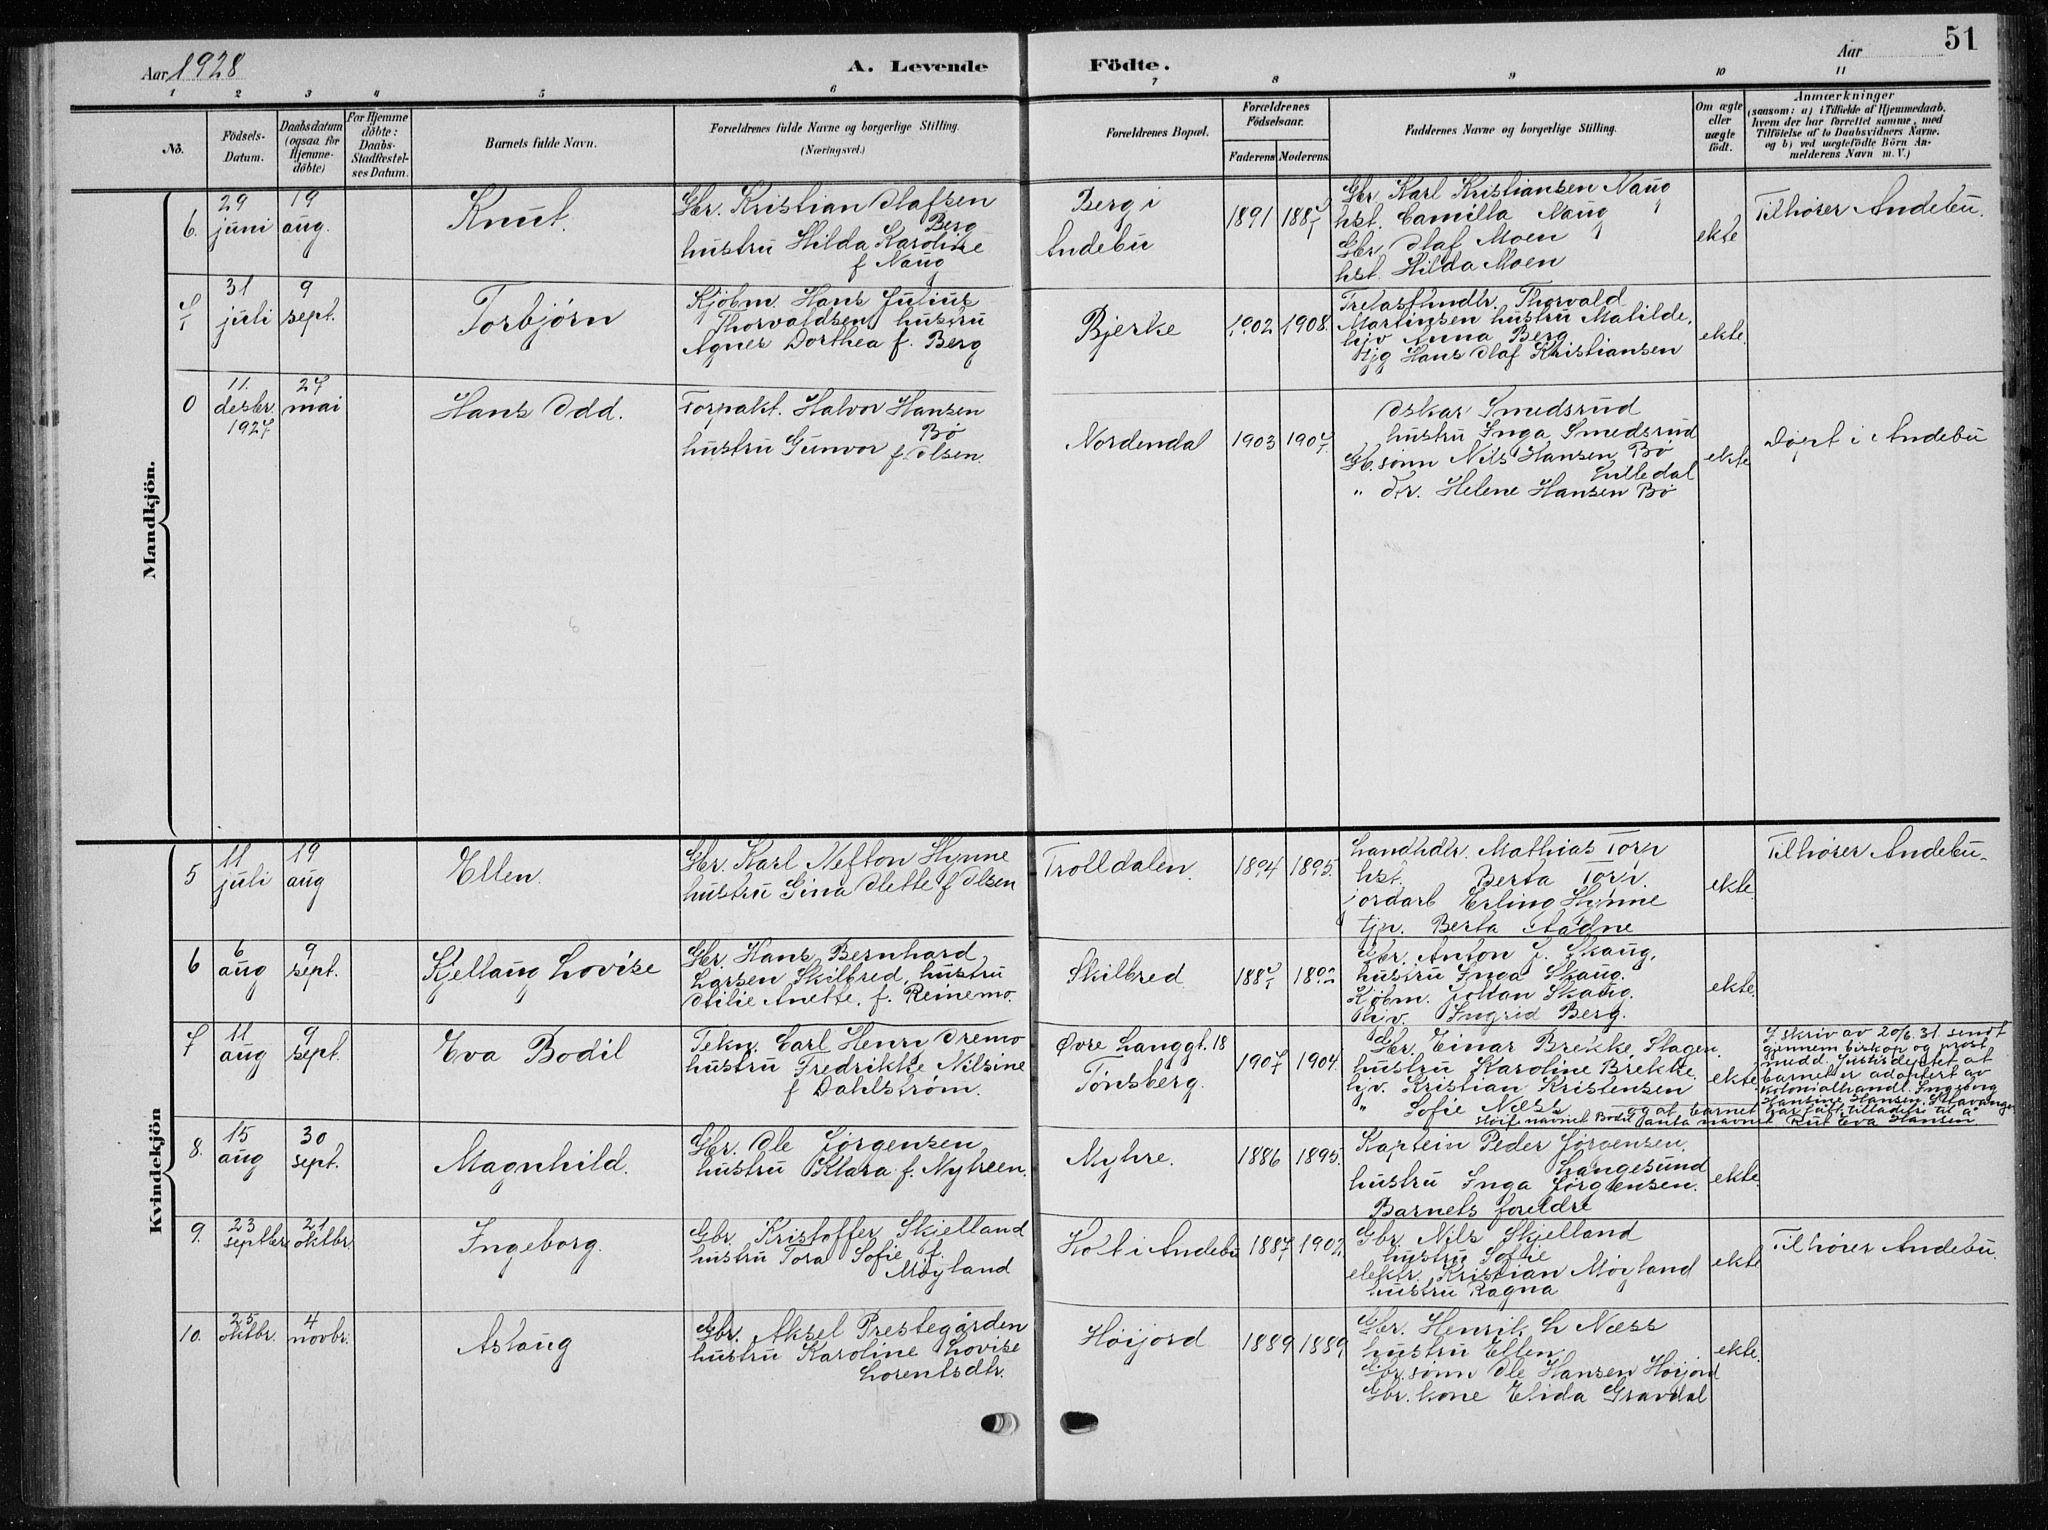 Aar 1928
A. Levende
Födte.
Aar
51
1 2 3 4 5 6 7 8 9 10 11
No.
Födsels-
Datum.
Daabsdatum
(ogsaa for
Hjemme-
döbte)
For Hjemme
döbte:
Daabs-
Stadfæstel-
ses Datum.
Barnets fulde Navn.
Forældrenes fulde Navne og borgerlige Stilling.
(Næringsvei.)
Forældrenes Bopæl.
Forældrenes
Födselsaar.
Faderens Moderens.
Faddernes Navne og borgerlige Stilling.
Om ægte
eller
uægte
födt.
Anmærkninger
(saasom: a) i Tilfælde af Hjemmedaab.
hvem der har forrettet samme, med
Tilföielse af to Daabsvidners Navne.
og b) ved uægtefödte Börn An-
melderens Navn m. V.)
Mandkjön.
6. 29 juni
19 aug.
Knut.
Gbr. Kristian Olafsen
Berg
hustru Hilda Karoline
f Naug
Berg i
Andebu
1891 1887
Gbr. Karl Kristiansen Naug
hst. Camilla Naug
Gbr. Olaf Moen
hst. Hilda Moen
ekte
Tilhører Andebu.
7 31 juli
9 sept.
Torbjørn
Kjøbm. Hans Julius
Thorvaldsen hustru
Agnes Dorthea f. Berg
Bjerke
1902 1908.
Trelasthndlr. Thorvald
Martinsen hustru Matilde.
hjv Anna Berg
Hans Olaf Kristiansen
ekte.
0 11. desbr. 1927.
27 mai
Hans Odd.
Forpakt. Halvor Hansen
Bø
hustru Gunvor f. Olsen.
Nordendal
1903 1907
Oskar Smedsrud
hustru Inga Smedsrud
Gb.sønn Nils Hansen Bø
Lilledal
" dr. Helene Hansen Bø
ekte
Døpt i Andebu
Kvindekjön
5 11 juli
19 aug
Ellen.
Gbr. Karl Nefton Hynne
hustru Gina Olette f Olsen
Trolldalen.
1894 1895.
Landhdlr. Mathias Torp
hst. Berta Torp.
jordarb Erling Hynne
tjp. Berta Aadne
ekte.
Tilhører Andebu.
6 6 aug
9 sept.
Kjellaug Lovise
Gbr. Hans Bernhard
Larsen Skilbred, hustru
Otilie Anette, f. Reinemo.
Skilbred
1887
Gbr. Anton J. Skaug,
hustru Inga Skaug.
Kjøbm. Johan Skaug.
Hjv. Ingrid Berg.
ekte.
7 11 aug
9 sept.
Eva Bodil
Tekn. Carl Henri Oremo
hustru Fredrikke Nilsine
f Dahlstrøm.
Øvre Langgt. 18
Tønsberg.
1907 1904.
Gbr. Einar Brekke, Slagen.
hustru Karoline Brekke.
hjv. Kristian Kristensen
" Sofie Næss
ekte.
I skriv av 20/6. 31. sendt
gjennem biskop og prost
medd. Justisdeptet at
barnet er adoptert av
kolonialhandl. Ingeborg
Hansine Hansen, Stavanger
og at barnet har fått tilladelse til å
sløife navnet Bodil & anta navnet Rut Eva Hansen
8. 15 aug
30 sept.
Magnhild.
Gbr. Ole Jørgensen,
hustru Klara f. Nyhreen.
Myhre.
1886 1895.
Kaptein Peder Jørgensen.
Langesund
hustru Inga Jørgensen.
Barnets foreldre
ekte.
9. 23 septbr
21 oktbr.
Ingeborg.
Gbr. Kristoffer Skjelland
hustru Tora Sofie f.
Møyland
Holt i Andebu
1887 1902.
Gbr. Nils Skjelland
hustru Sofie
elektr. Kristian Møyland
hustru Ragna
ekte
Tilhører Andebu.
10. 25 oktbr.
4 novbr.
Aslaug
Gbr. Aksel Prestegården
hustru Karoline Lovise
Lorentsdtr.
Høijord
1889 1889,
Gbr. Henrik L Næss
hustru Ellen
Gbr.sønn Ole Hansen Høijord
Gbr. kone Elida Gravdal
ekte.